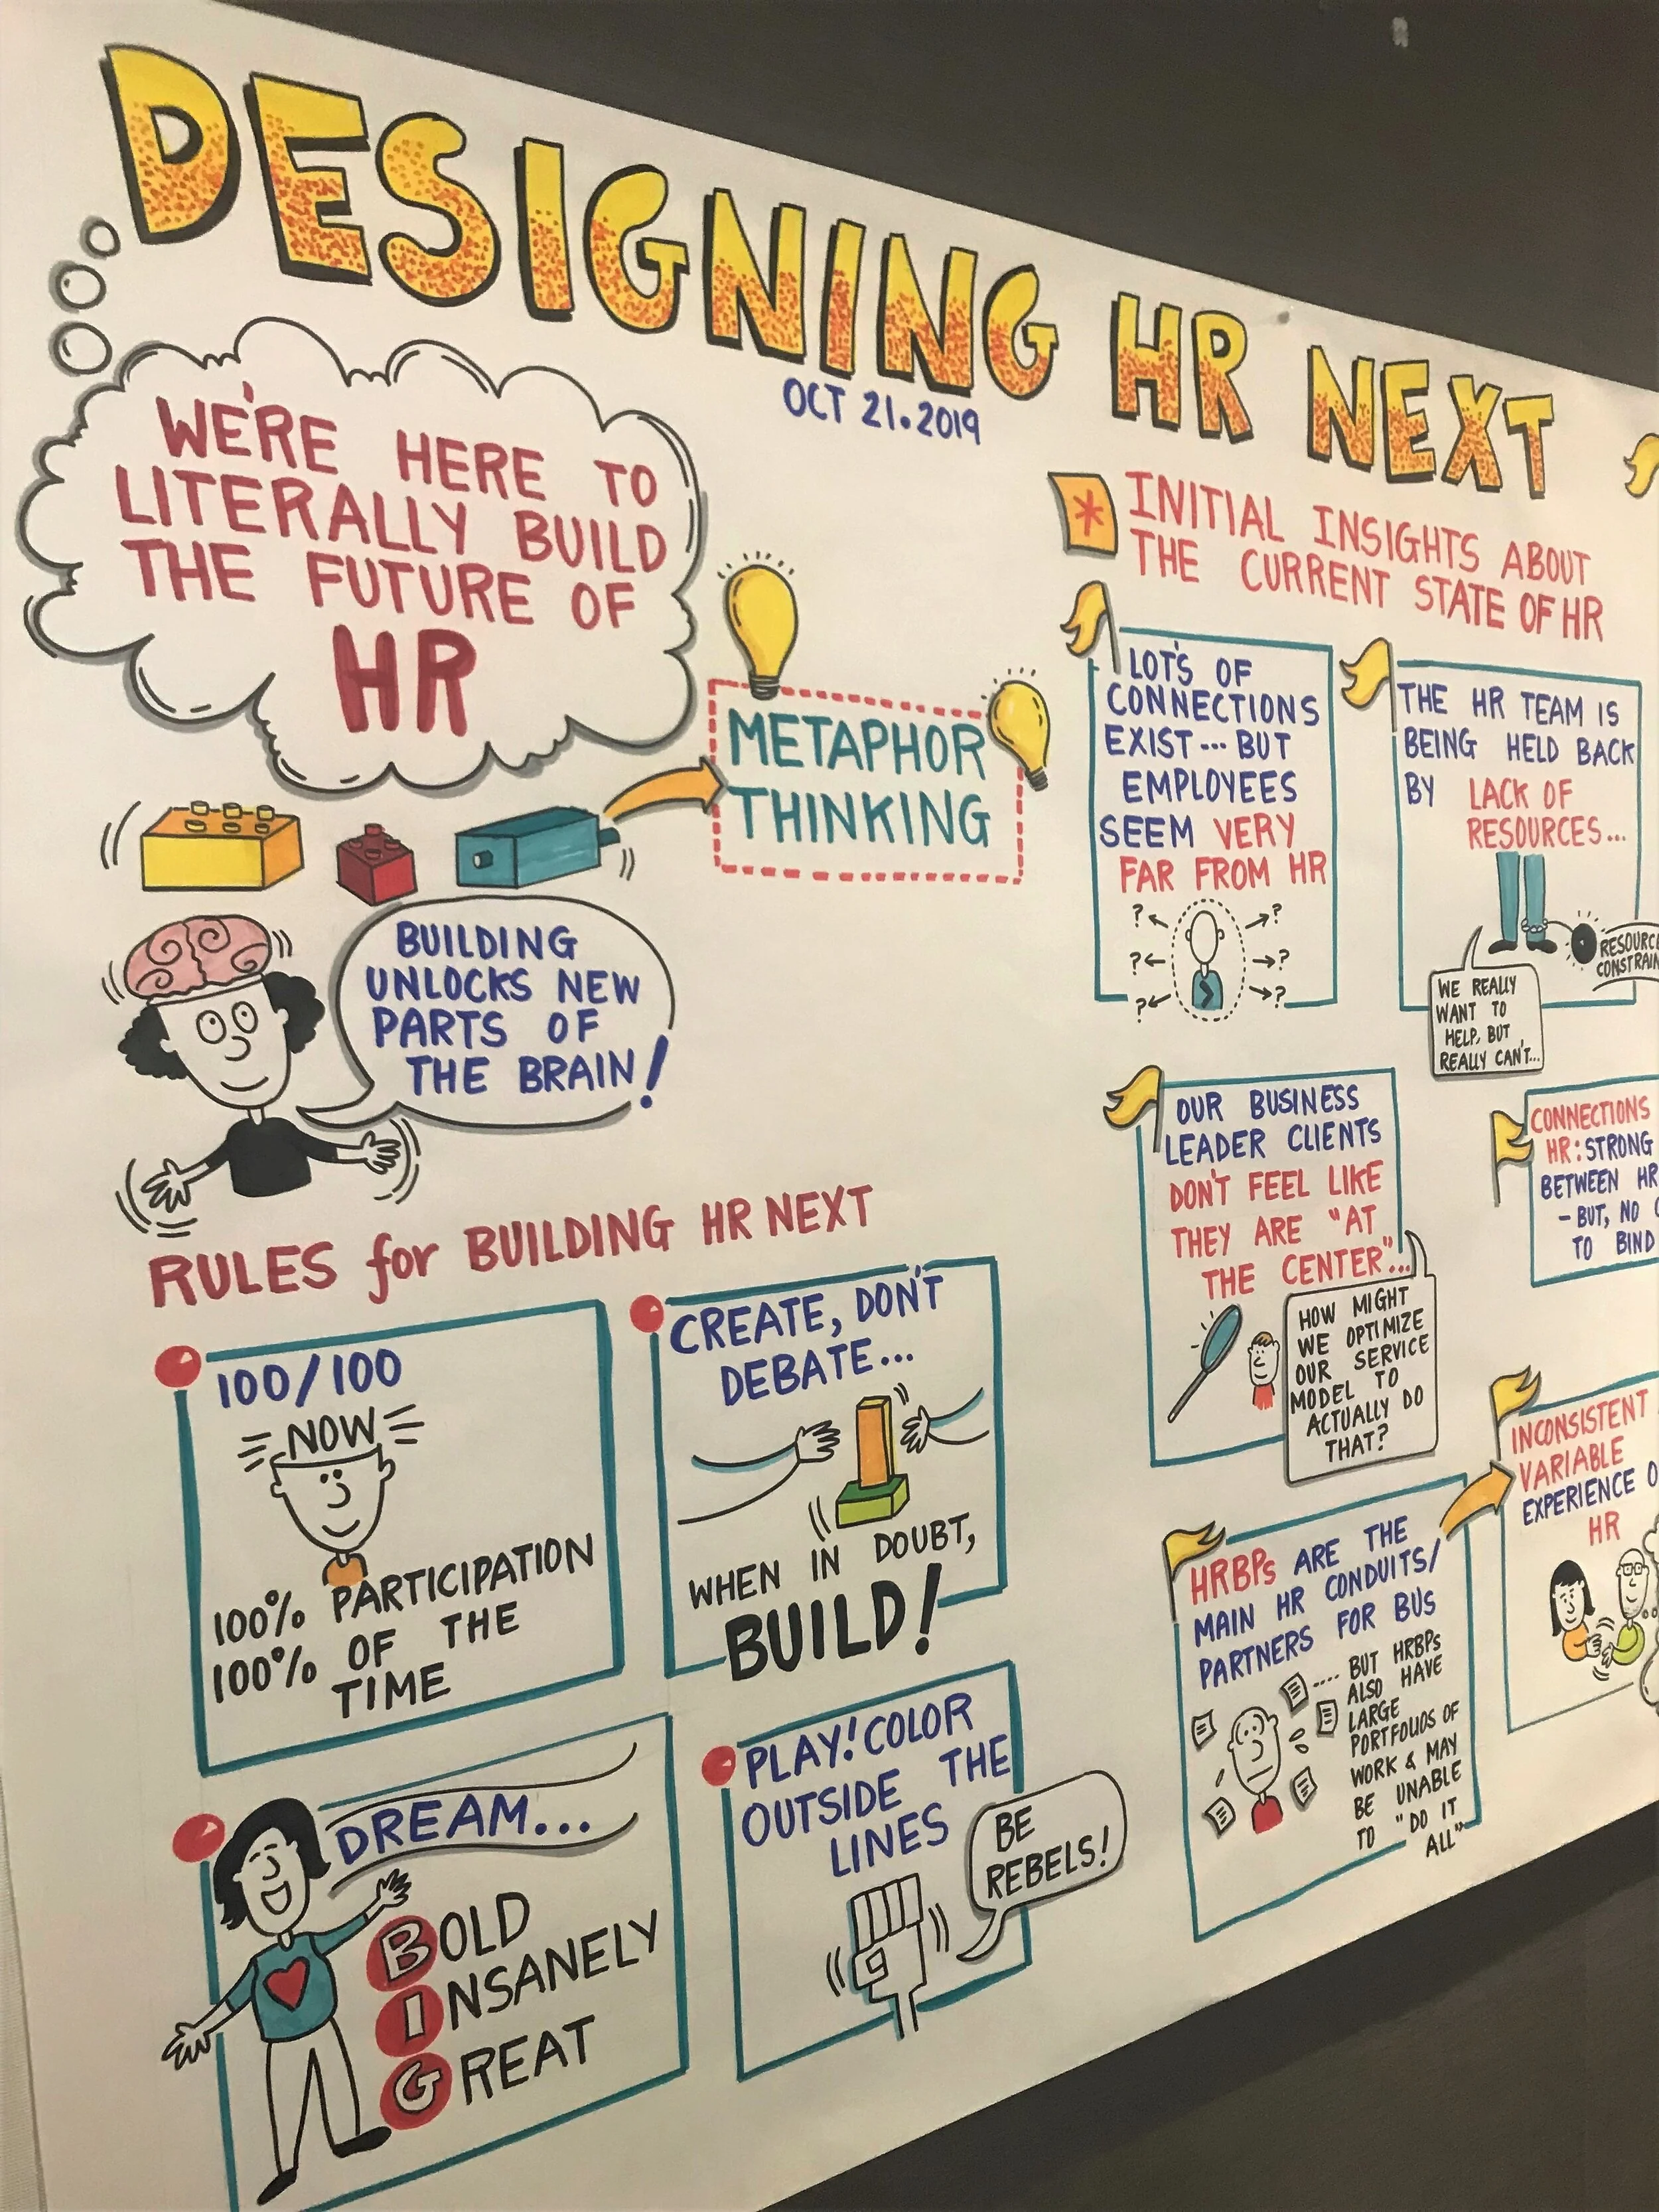 DESIGNING HR NEXT
OCT 21.2019
WE'RE HERE TO
LITERALLY BUILD
THE FUTURE OF
HR
METAPHOR
THINKING
BUILDING
UNLOCKS NEW
PARTS OF
THE BRAIN!
RULES for BUILDING HR NEXT
100/100
NOW
100% PARTICIPATION
100% OF THE
TIME
CREATE, DON'T
DEBATE...
WHEN IN DOUBT,
BUILD!
DREAM...
BOLD
INSANELY
GREAT
PLAY! COLOR
OUTSIDE THE
LINES
BE
REBELS!
* INITIAL INSIGHTS ABOUT
THE CURRENT STATE OF HR
LOT'S OF
CONNECTIONS
EXIST... BUT
EMPLOYEES
SEEM VERY
FAR FROM HR
? ?
? ?
? ?
THE HR TEAM IS
BEING HELD BACK
BY LACK OF
RESOURCES...
RESOURCE
WE REALLY
WANT TO
HELP, BUT
REALLY CAN'T...
OUR BUSINESS
LEADER CLIENTS
DON'T FEEL LIKE
THEY ARE "AT
THE CENTER"...
HOW MIGHT
WE OPTIMIZE
OUR SERVICE
MODEL TO
ACTUALLY DO
THAT?
CONNECTIONS
HR: STRONG
BETWEEN HR
- BUT, NO
TO BIND
HRBPs ARE THE
MAIN HR CONDUITS/
PARTNERS FOR BUS
.... BUT HRBPs
ALSO HAVE
LARGE
PORTFOLIOS OF
WORK & MAY
BE UNABLE
TO "DO IT
ALL"
INCONSISTENT
VARIABLE
EXPERIENCE
HR